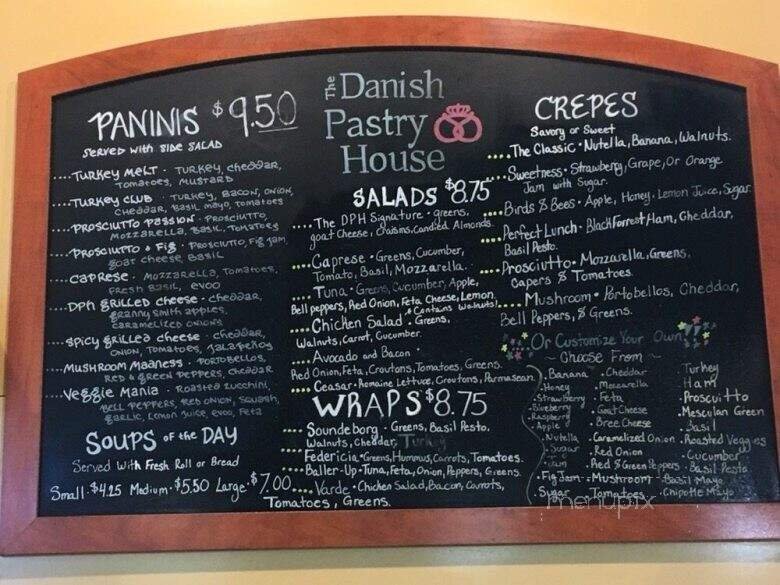 PANINIS $9.50
SERVED WITH SIDE SALAD
....TURKEY MELT · TURKEY, CHEDDAR,
TOMATOES, MUSTARD
....TURKEY CLUB · TURKEY, BACON, ONION,
CHEDDAR, BASIL MAYO, TOMATOES
....PROSCIUTTO PASSION · PROSCIUTTO,
MOZZARELLA, BASIL, TOMATOES
....PROSCIUTTO & FIG · PROSCIUTTO, FIG JAM,
GOAT CHEESE, BASIL
....CAPRESE · MOZZARELLA, TOMATOES,
FRESH BASIL, EVOO
....DPH GRILLED CHEESE · CHEDDAR,
GRANNY SMITH APPLES,
CARAMELIZED ONIONS
....SPICY GRILLED CHEESE · CHEDDAR,
ONION, TOMATOES, JALAPEÑOS
....MUSHROOM MADNESS · PORTOBELLOS,
RED & GREEN PEPPERS, CHEDDAR
....VEGGIE MANIA · ROASTED ZUCCHINI,
BELL PEPPERS, RED ONION, SQUASH,
GARLIC, LEMON JUICE, EVOO, FETA
SOUPS OF THE DAY
Served With Fresh Roll or Bread
Small · $4.25 Medium · $5.50 Large · $7.00
The Danish
Pastry
House
SALADS $8.75
....The DPH Signature · Greens,
Goat Cheese, Craisins, Candied Almonds.
....Caprese · Greens, Cucumber,
Tomato, Basil, Mozzarella.
....Tuna · Greens, Cucumber, Apple,
Bell peppers, Red Onion, Feta Cheese, Lemon
(Contains Walnuts)
....Chicken Salad · Greens,
Walnuts, Carrot, Cucumber.
....Avocado and Bacon ·
Red Onion, Feta, Croutons, Tomatoes, Greens.
....Ceasar · Romaine Lettuce, Croutons, Parmasean.
WRAPS $8.75
....Soundeborg · Greens, Basil Pesto.
Walnuts, Cheddar, Turkey
....Federicia · Greens, Hummus, Carrots, Tomatoes.
....Baller-Up · Tuna, Feta, Onion, Peppers, Greens.
....Varde · Chicken Salad, Bacon, Carrots,
Tomatoes, Greens.
CREPES
Savory or Sweet
....The Classic · Nutella, Banana, Walnuts.
....Sweetness · Strawberry, Grape, Or Orange
Jam with Sugar.
....Birds & Bees · Apple, Honey, Lemon Juice, Sugar
....Perfect Lunch · Black Forrest Ham, Cheddar,
Basil Pesto.
....Prosciutto · Mozzarella, Greens,
Capers & Tomatoes.
....Mushroom · Portobellos, Cheddar,
Bell Peppers, & Greens.
Or Customize Your Own
~ Choose From ~
· Banana
· Honey
· Strawberry
· Blueberry
· Raspberry
· Apple
· Nutella
· Sugar
· Jam
· Fig Jam
· Sugar
· Cheddar
· Mozzarella
· Feta
· Goat Cheese
· Bree Cheese
· Caramelized Onion
· Red Onion
· Red & Green Peppers
· Mushroom
· Tomatoes
· Turkey
· Ham
· Proscuitto
· Mesculan Green
· Basil
· Roasted Veggies
· Cucumber
· Basil Pesto
· Basil Mayo
· Chipotle Mayo
menupix